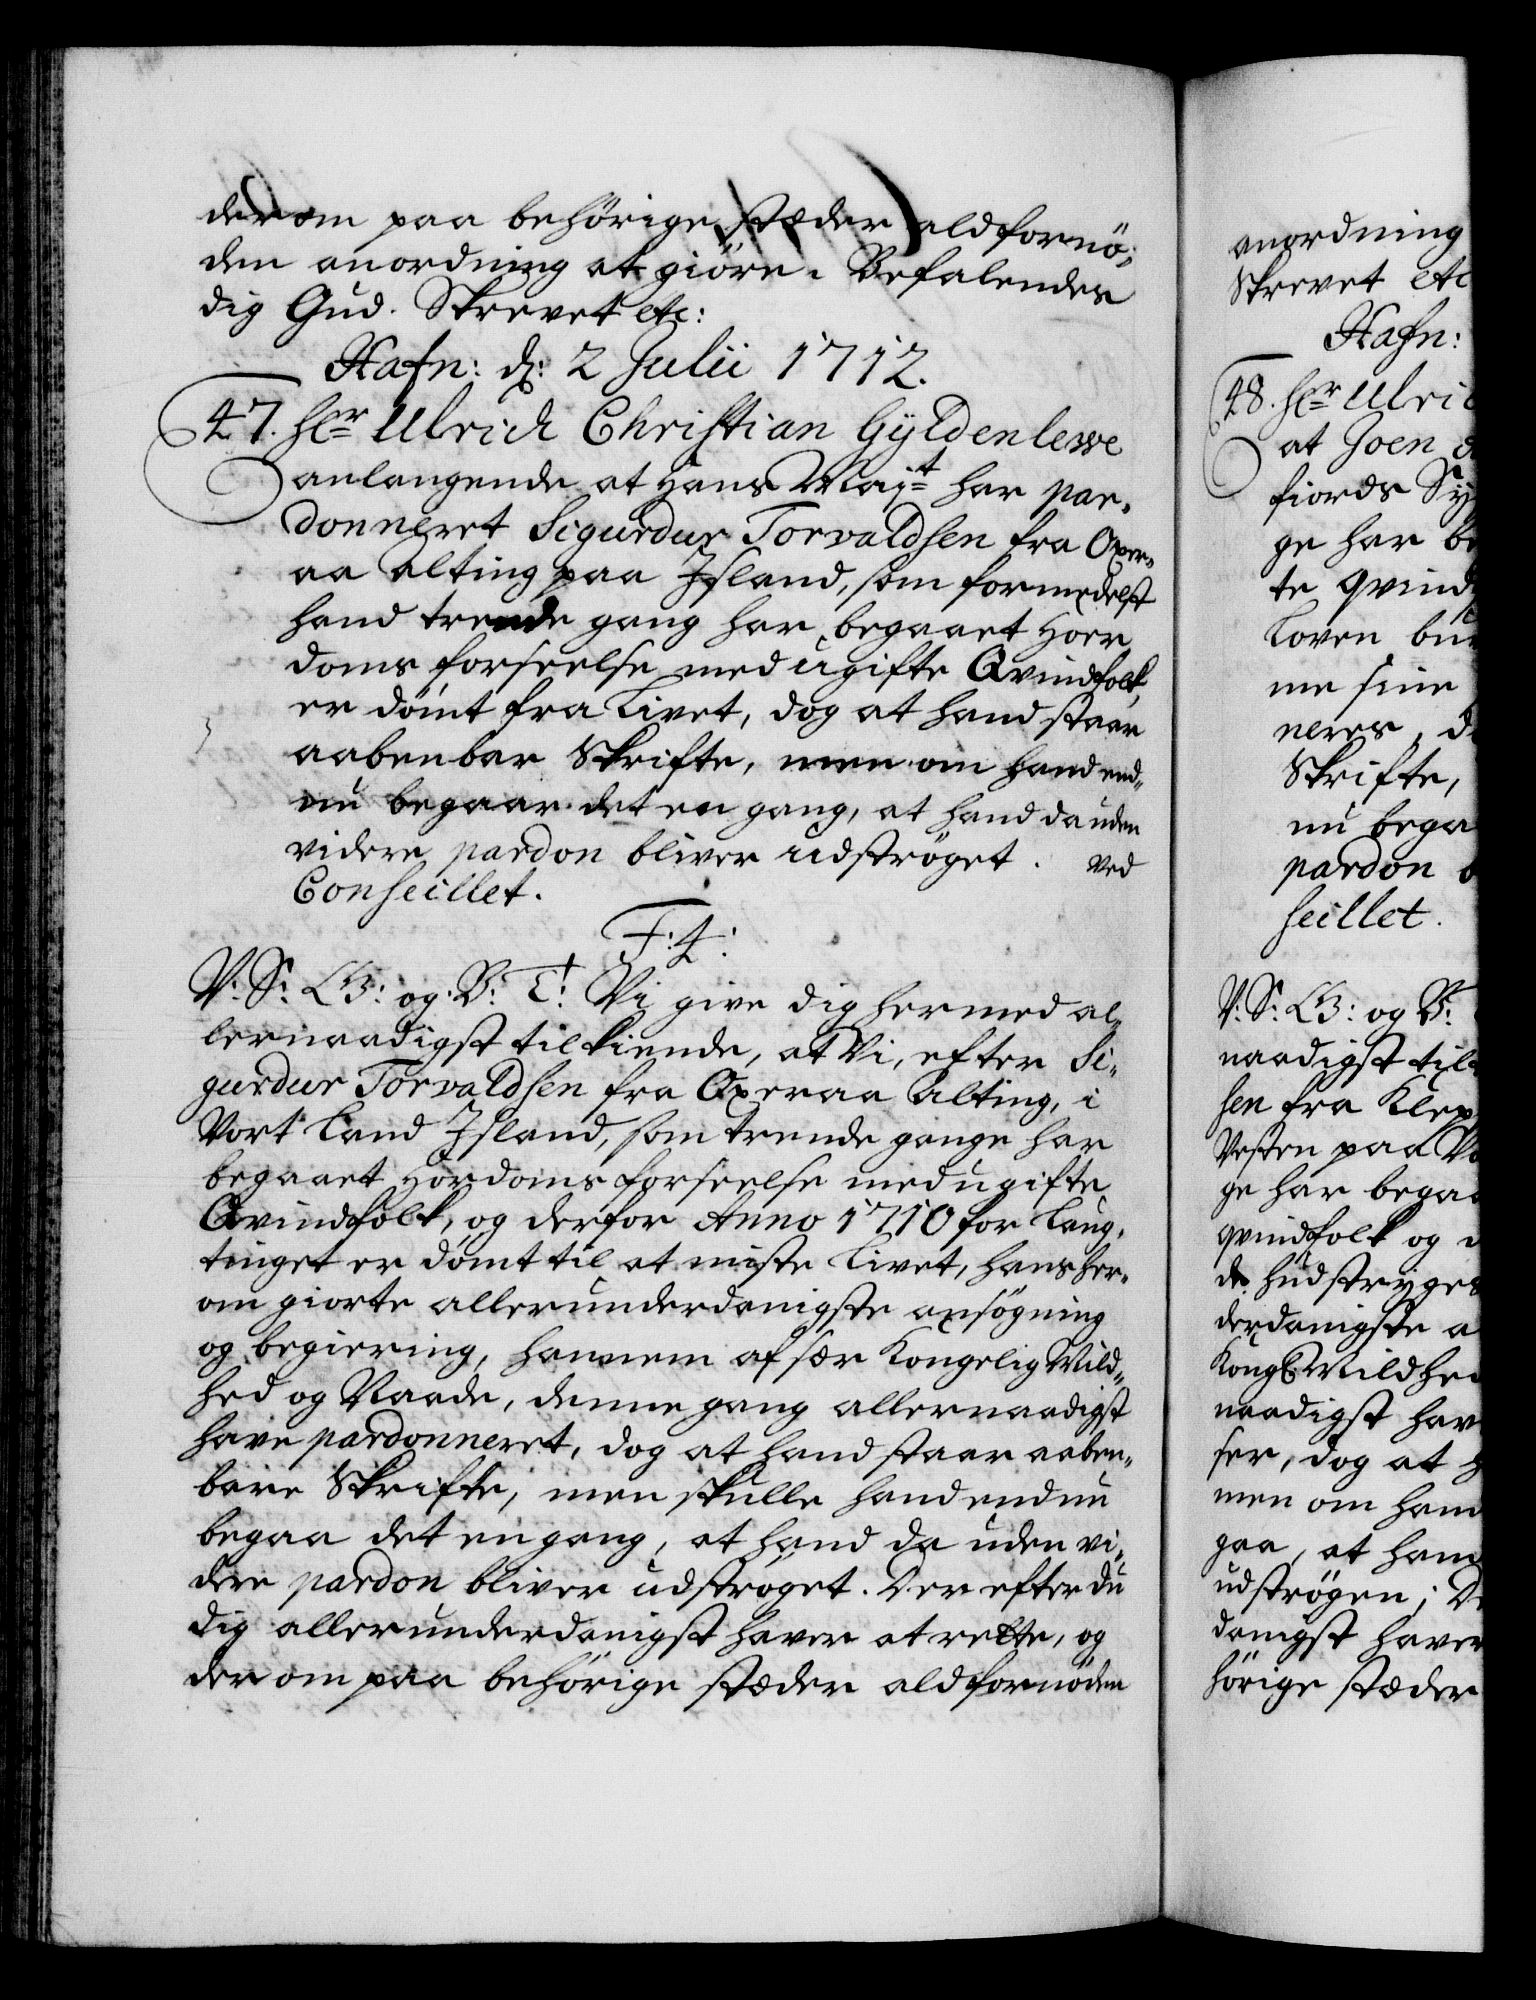 derom paa behörige stæder aldfornö-
den anordning at giöre. Befalendes
dig Gud. Skrevet etc:
Hafn: d: 2 Julii 1712.
47. Hr Ulrich Christian Gyldenlewe
anlangende at Hans Mayt har par-
donneret Sigurdur Torvaldsen fra Oxer-
aa Alting paa Island, som formedelst
hand trende gang har begaaet Hoer
doms forseelse med ugifte Qvindfolk
er dömt fra Livet, dog at hand staar
aabenbar Skrifte, men om hand end-
nu begaar det en gang, at hand da uden
videre pardon bliver udströget. ved
Conseillet.
F: 4:
V: S: G: og B: T: Vi give dig hermed al-
lernaadigst tilkiende, at Vi, efter Si-
gurdur Torvaldsen fra Oxeraa Alting, i
Vort Land Island, som trende gange har
begaaet Hordoms forseelse med ugifte
Qvindfolk, og derfor Anno 1710 for Laug-
tinget er dömt til at miste Livet, hans her-
om giorte allerunderdanigste ansögning
og begiering, hannem af sær Kongelig Mild-
hed og Naade, denne gang allernaadigst
have pardonneret, dog at hand staar aaben-
bare Skrifte, men skulle hand endnu
begaa det en gang, at hand da uden vi-
dere pardon bliver udströget. Der efter du
dig allerunderdanigst haver at rette, og
derom paa behörige stæder aldfornöden
anordning
Skrevet etc
Hafn:
48. Hr Ulric
at Joen
fiords Sy
ge har be
te qvind
Loven bu
me sine
neres, d
Skrifte,
nu bega
pardon b
seillet.
V: S: G: og B:
naadigst til
sen fra Klep
Vesten paa
ge har begaa
qvindfolk og
de hudstryges
derdanigste a
Kongl: Mildhed
naadigst hav
ser, dog at h
men om hand
gaa, at hand
udströgen; D
danigst haver
hörige stæder